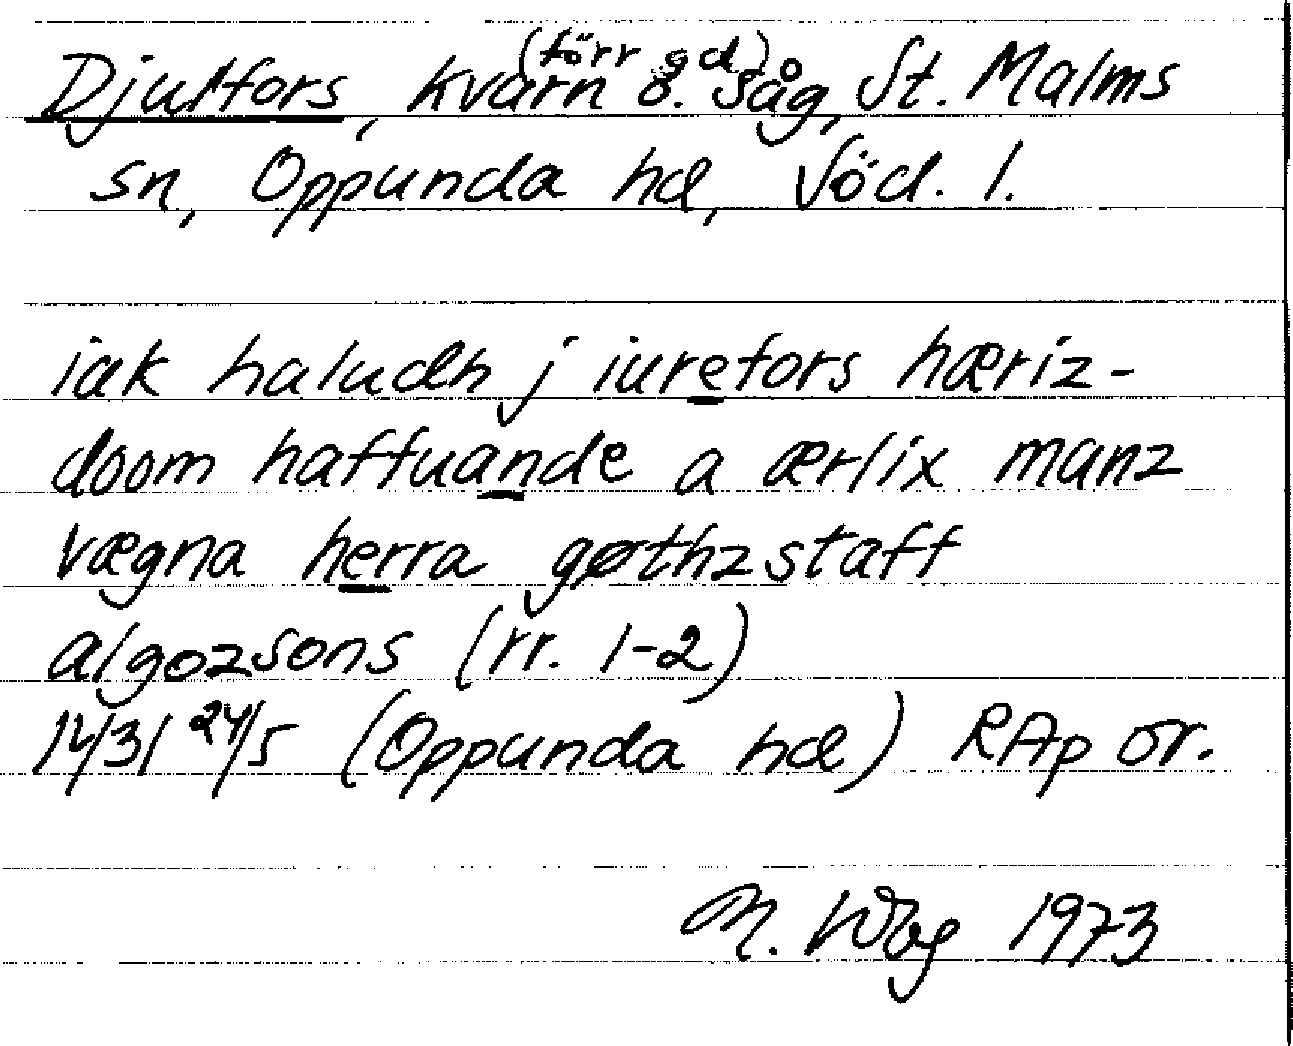 (förr gd)
Djulfors, kvarn o. såg, St. Malms
sn, Oppunda hd, Söd. l.
iak haludh j iurefors hæriz-
doom haffuande a ærlix manz
vægna herra gøthzstaff
algozsons (rr. 1-2)
14/31 24/5 (Oppunda hd) RAp or.
M. Wbg 1973